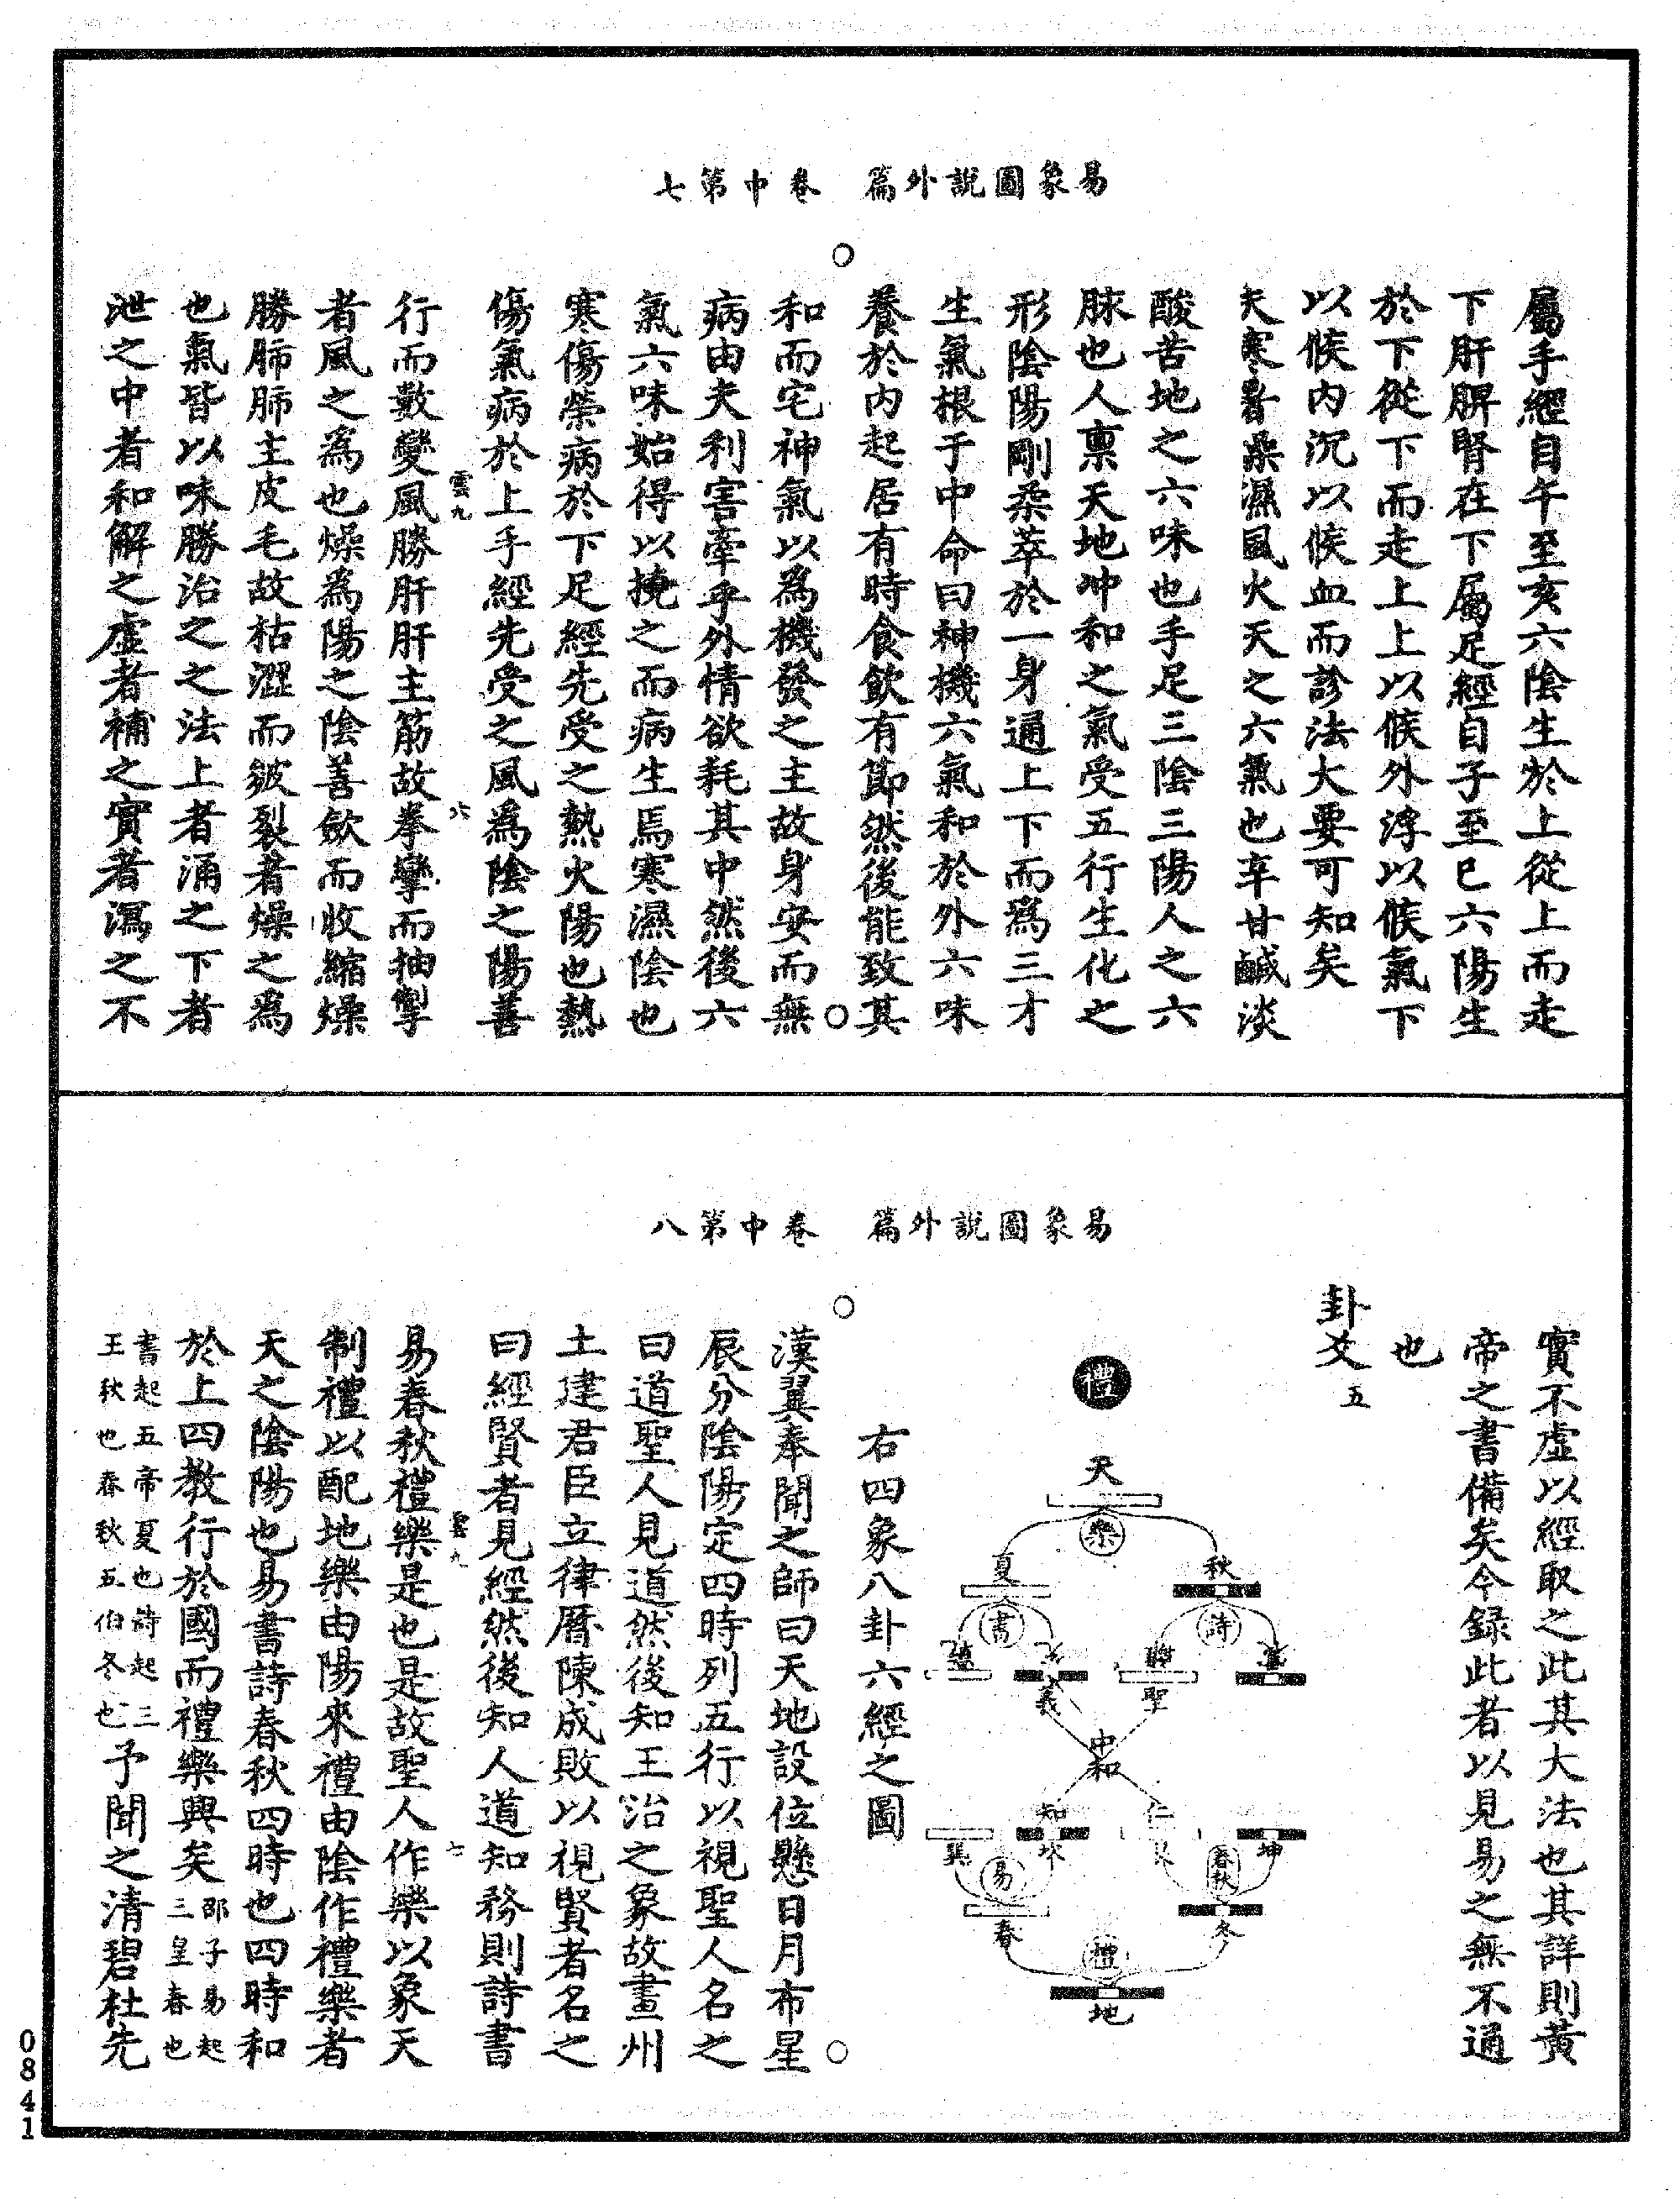 易象圖說外篇　卷中第七
屬手經自午至亥六陰生於上從上而走
下肝脾腎在下屬足經自子至巳六陽生
於下從下而走上上以候外浮以候氣下
以候內沉以候血而診法大要可知矣
夫寒暑燥濕風火天之六氣也辛甘鹹淡
酸苦地之六味也手足三陰三陽人之六
脉也人稟天地冲和之氣受五行生化之
形陰陽剛柔萃於一身通上下而為三才
生氣根于中命曰神機六氣和於外六味
養於內起居有時食飲有節然後能致其
和而宅神氣以為機發之主故身安而無
病由夫利害牽乎外情欲耗其中然後六
氣六味始得以撓之而病生焉寒濕陰也
寒傷榮病於下足經先受之熱火陽也熱
傷氣病於上手經先受之風為陰之陽善
行而數變風勝肝肝主筋故拳攣而抽掣
雲九
六
者風之為也燥為陽之陰善歛而收縮燥
勝肺肺主皮毛故枯澀而皴裂者燥之為
也氣皆以味勝治之之法上者涌之下者
泄之中者和解之虛者補之實者瀉之不
易象圖說外篇　卷中第八
實不虛以經取之此其大法也其詳則黃
帝之書備矣今録此者以見易之無不通
也
卦爻五
禮
天
樂
夏
秋
書
詩
義
聖
中
和
知
仁
巽
坎
坤
易
春秋
春
冬
禮
地
右四象八卦六經之圖
漢翼奉聞之師曰天地設位懸日月布星
辰分陰陽定四時列五行以視聖人名之
曰道聖人見道然後知王治之象故畫州
土建君臣立律曆陳成敗以視賢者名之
曰經賢者見經然後知人道知務則詩書
易春秋禮樂是也是故聖人作樂以象天
雲九
七
制禮以配地樂由陽來禮由陰作禮樂者
天之陰陽也易書詩春秋四時也四時和
於上四教行於國而禮樂興矣邵子易起三皇春也
書起五帝夏也詩起三王秋也春秋五伯冬也予聞之清碧杜先
0841